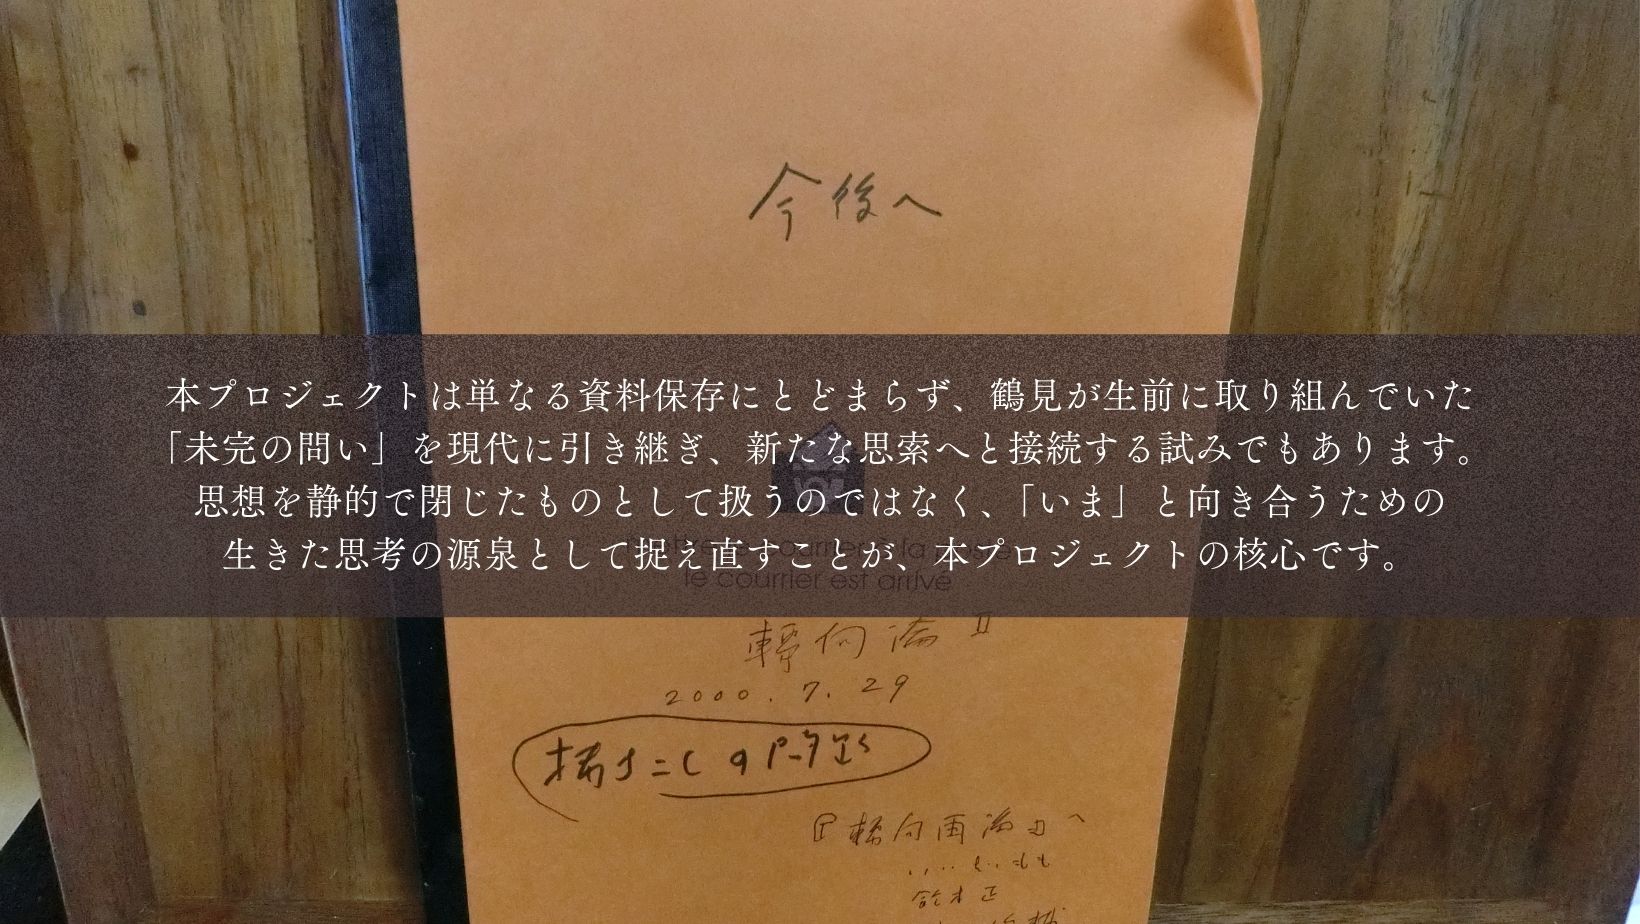 今後へ
本プロジェクトは単なる資料保存にとどまらず、鶴見が生前に取り組んでいた
「未完の問い」を現代に引き継ぎ、新たな思索へと接続する試みでもあります。
思想を静的で閉じたものとして扱うのではなく、「いま」と向き合うための
生きた思考の源泉として捉え直すことが、本プロジェクトの核心です。
le courrier est arrivé
轉向論 II
2000.7.29
『轉向再論』へ
鈴木正